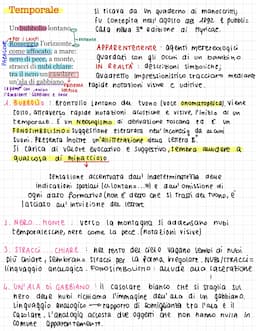 Temporale
Un bubbolio lontano...
Rosseggia l'orizzonte,
come affocato, a mare:
nero di pece, a monte,
stracci di nubi chiare:
tra il nero un casolare:
un'ala di gabbiano.
Si ricava da un quaderno di manoscritti,
fu concepita nell'agosto del 1892 e pubbli
cata nella 3° edizione di Myricae.
APPARENTEMENTE: agenti metereologici
guardati con gli occhi di un bambino
IN REALTÀ: descrizioni simboliche,
quadretto impressionistico tracciato mediante
rapide notazioni visive e uditive.
1. BUBBOLIO: brontolio lontano del tuono (voce onomatopeica) viene
colto, attraverso rapide notazioni auditive e visive, l'inizio di un
temporale. È un neologismo di derivazione toscana ed è un
FONOSIMBOLISMO: suggestione esercitata nell'inconscio da alcuni
suoni. Presenta inoltre un'alliterazione della lettera B.
Si carica di valore evocativo e suggestivo, sembra alludere a
qualcosa di minaccioso.
sensazione accentuata dall'indeterminatezza delle
indicazioni spaziali (lontano...) e dall'omissione di
ogni dato formativo (non è detto che si tratti del tuono, è
lasciato all'intuizione del lettore
2. NERO... MONTE: verso la montagna si addensano nubi
temporalesche, nere come la pece. (notazioni visive)
3. STRACCI... CHIARE: nel resto del cielo vagano lembi di nubi
più chiare, sembrano stracci per la forma irregolare. NUBI/STRACCI=
linguaggio analogico. Fonosimbolismo: allude alla lacerazione
4. UN'ALA DI GABBIANO: il casolare bianco che si staglia sul
nero delle nubi richiama l'immagine dell'ala di un gabbiano.
Linguaggio analogico → rapporto di somiglianza tra l'ala e il
casolare, l'analogia accosta due oggetti che non hanno nulla in
comune apparentemente.